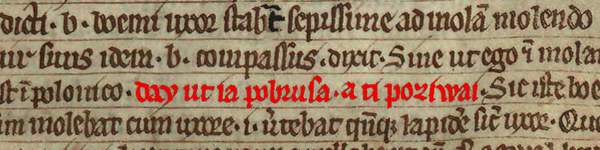 dicti · b · boemi uxor stabat sepissime ad molā molendo
ur suus idem · b · compassus · dixit · Sine ut ego ī molar
st ī polonico · day ut ia pobrusa · a ti poziwai · Sic iste boe
im molebat cum uxore · i · u͛tebat qn̄q; lapidē sic̄ uxor · Que